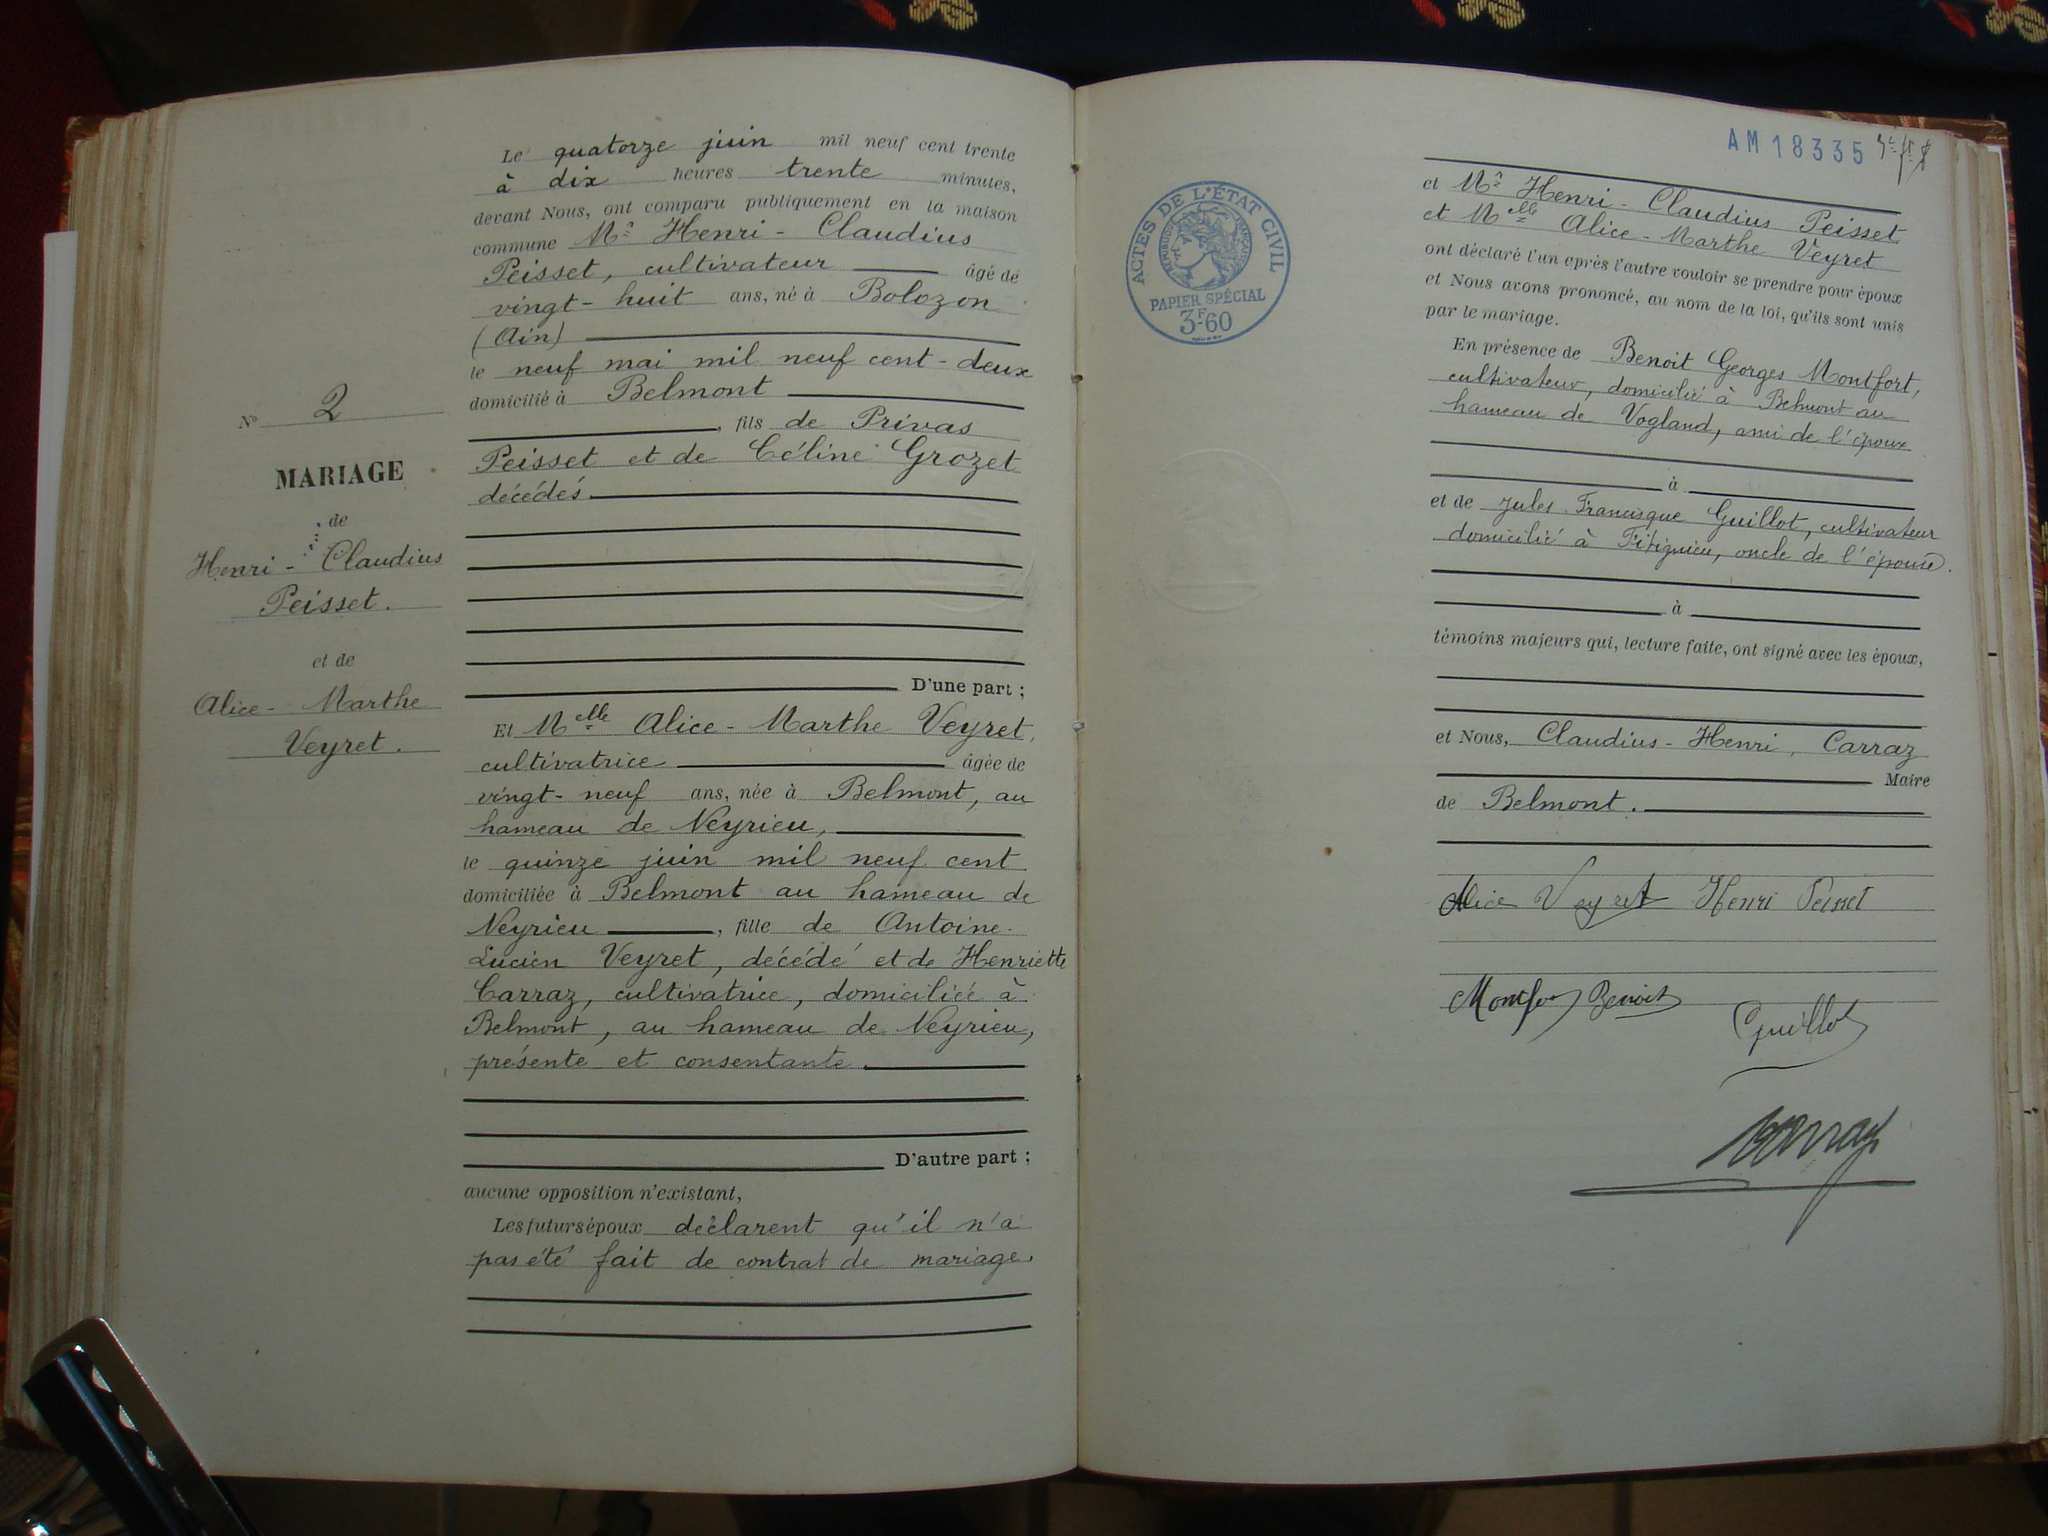 Nº 2
MARIAGE
de
Henri - Claudius
Peisset.
et de
Alice - Marthe
Veyret.
Le quatorze juin mil neuf cent trente
à dix heures trente minutes,
devant Nous, ont comparu publiquement en la maison
commune Mr Henri - Claudius
Peisset, cultivateur âgé de
vingt - huit ans, né à Bolozon
(Ain)
le neuf mai mil neuf cent - deux
domicilié à Belmont
, fils de Privas
Peisset et de Céline Grozet
décédés.
D'une part ;
Et Melle Alice - Marthe Veyret,
cultivatrice âgée de
vingt - neuf ans, née à Belmont, au
hameau de Neyrieu,
le quinze juin mil neuf cent
domiciliée à Belmont au hameau de
Neyrieu , fille de Antoine -
Lucien Veyret, décédé et de Henriette
Carraz, cultivatrice, domiciliée à
Belmont, au hameau de Neyrieu,
présente et consentante.
D'autre part ;
aucune opposition n'existant,
Les futurs époux déclarent qu'il n'a
pas été fait de contrat de mariage.
AM 18335
ACTES DE L'ÉTAT CIVIL
PAPIER SPÉCIAL
3F.60
et Mr Henri - Claudius Peisset
et Melle Alice - Marthe Veyret
ont déclaré l'un après l'autre vouloir se prendre pour époux
et Nous avons prononcé, au nom de la loi, qu'ils sont unis
par le mariage.
En présence de Benoit Georges Montfort,
cultivateur, domicilié à Belmont au
hameau de Vogland, ami de l'époux
à
et de Jules Francisque Guillot, cultivateur
domicilié à Fitignieu, oncle de l'épouse.
à
témoins majeurs qui, lecture faite, ont signé avec les époux,
et Nous, Claudius - Henri, Carraz
Maire
de Belmont.
Alice Veyret Henri Peisset
Montfort Benoit
Guillot
Carraz